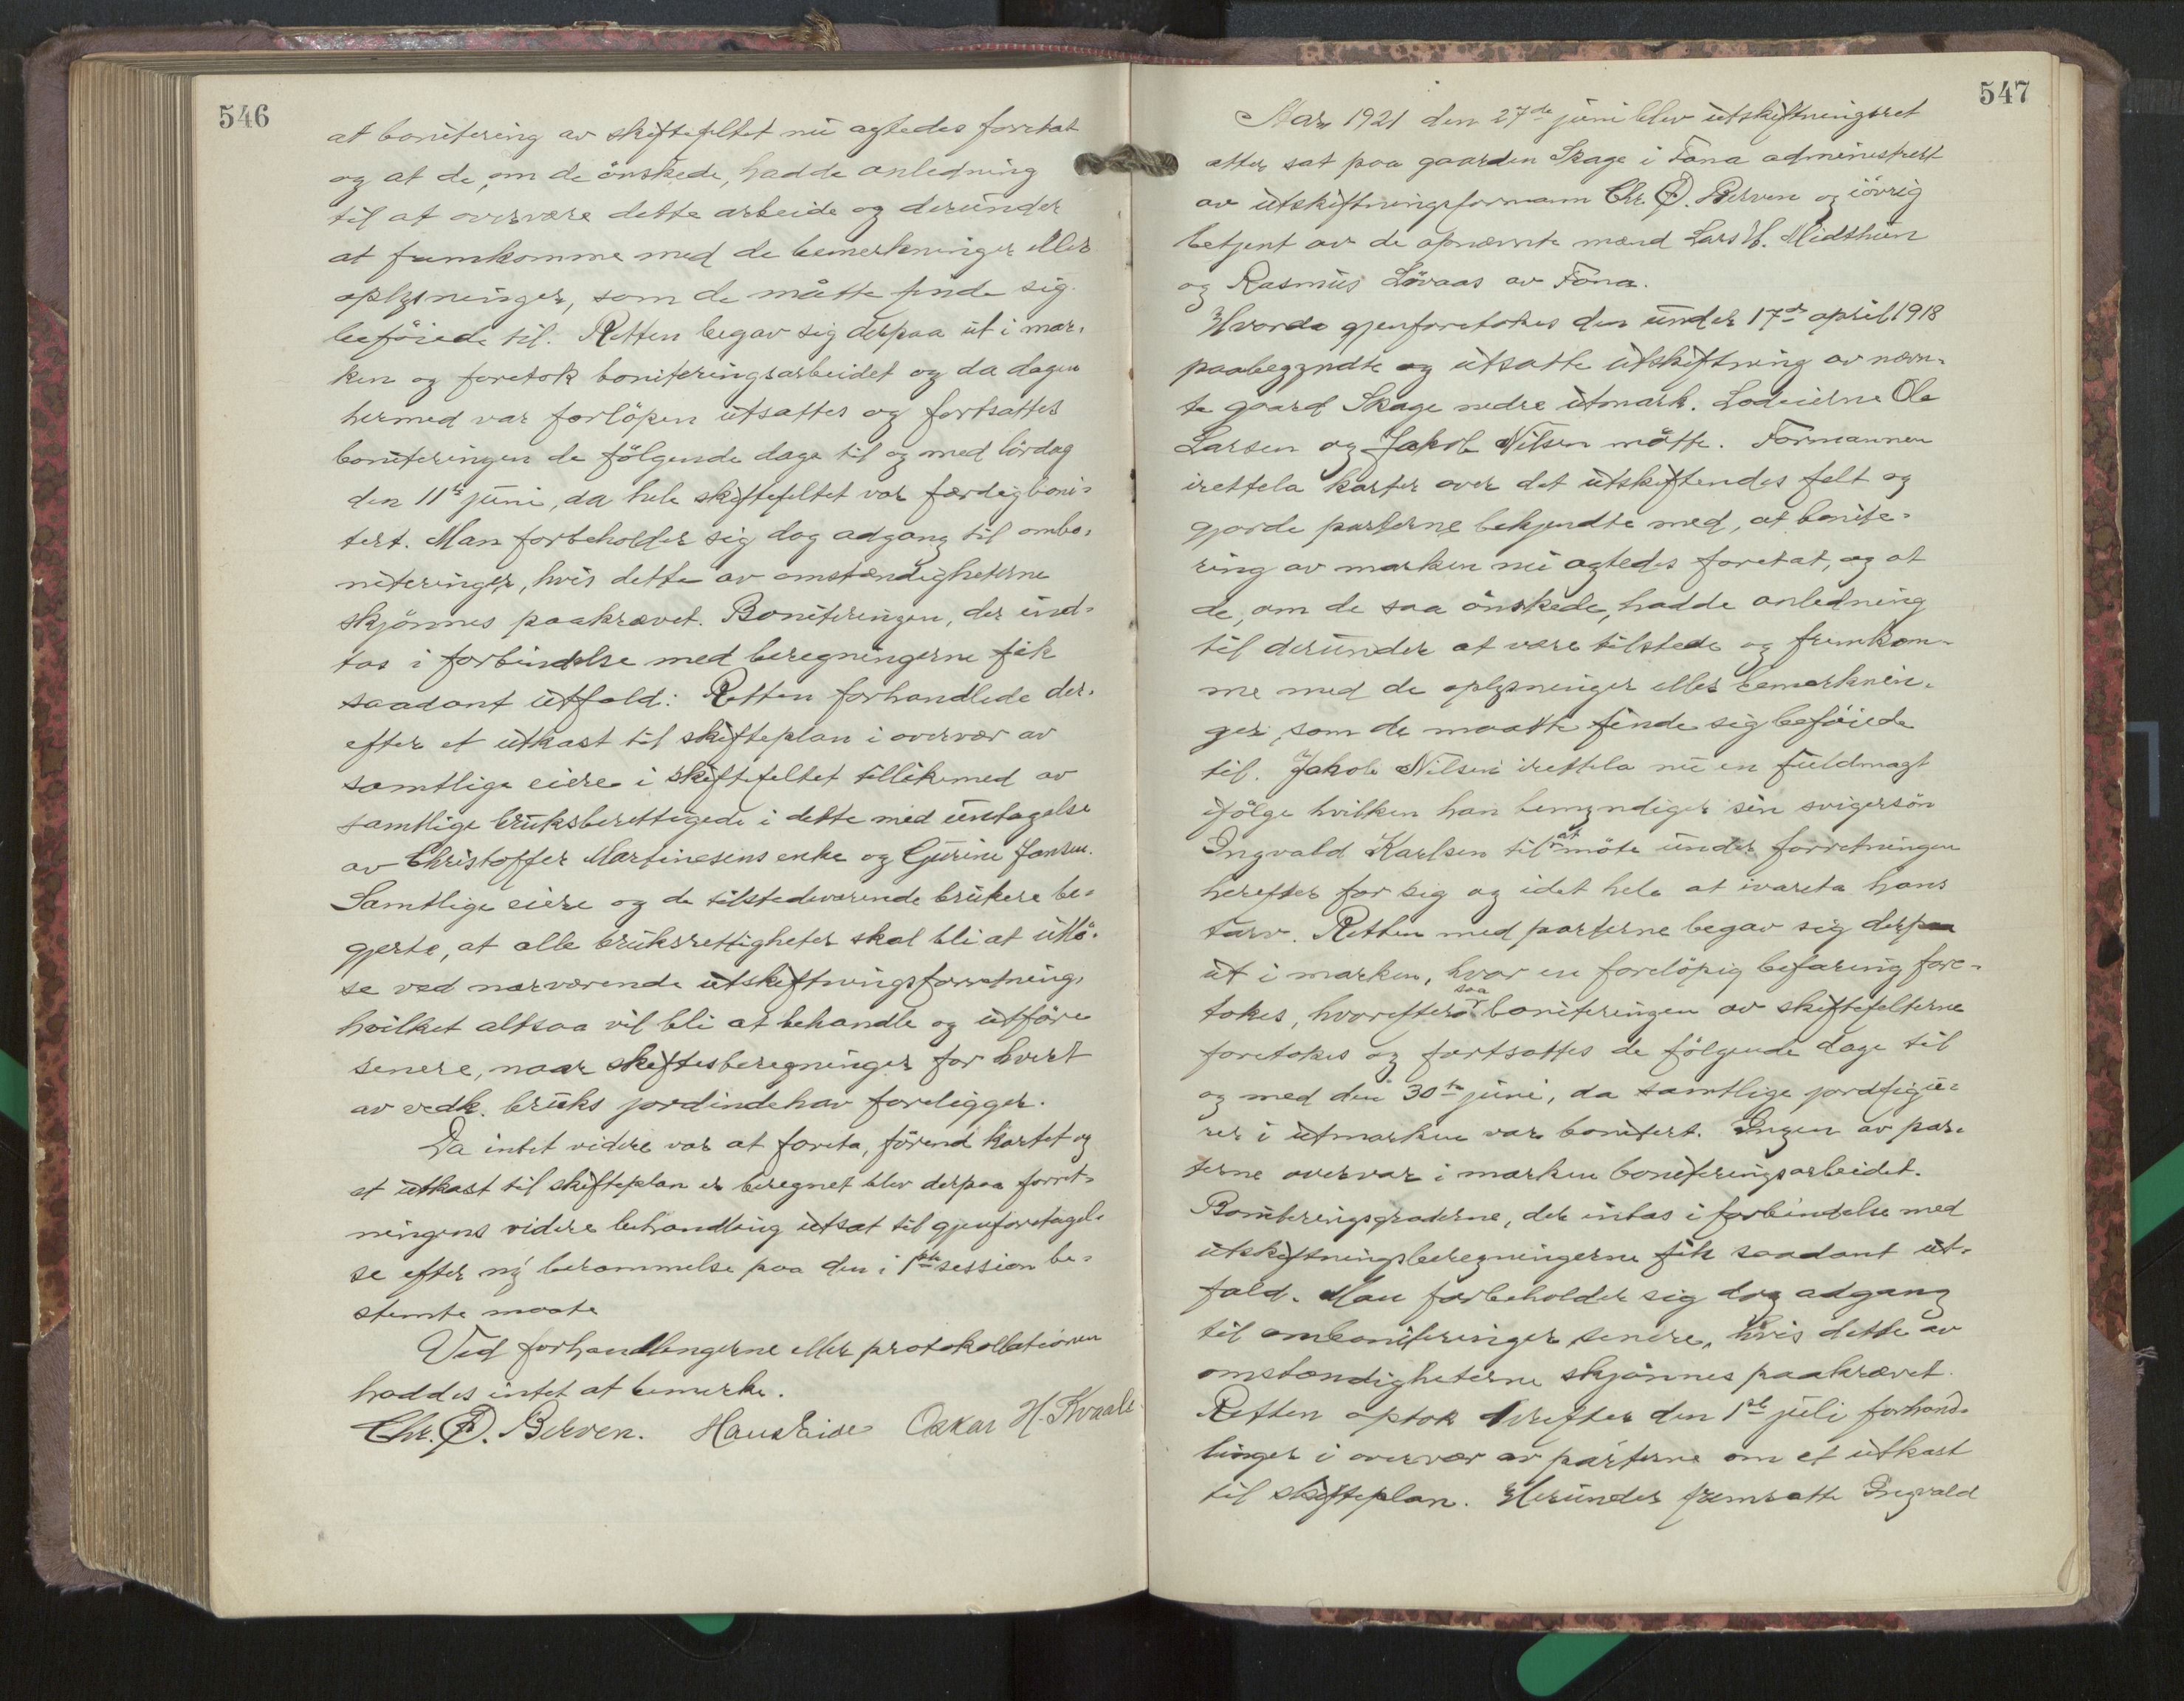 546
at bonitering av skiftefeltet nu agtedes foretat
og at de, om de önskede, hadde anledning
til at overvære dette arbeide og derunder
at fremkomme med de bemerkninger eller
oplysninger, som de måtte finde sig
beföiede til. Retten begav sig derpaa ut i mar-
ken og foretok boniteringsarbeidet og da dagen
hermed var forlöpen utsattes og fortsattes
boniteringen de fölgende dage til og med lördag
den 11te juni, da hele skiftefeltet var færdigboni-
tert. Man forbeholder sig dog adgang til ombo-
niteringer, hvis dette av omstændigheterne
skjönnes paakrævet. Boniteringen, der ind-
tas i forbindelse med beregningerne fik
saadant utfald: Retten forhandlede der-
efter et utkast til skifteplan i overvær av
samtlige eiere i skiftefeltet tillikemed av
samtlige bruksberettigede i dette med untagelse
av Christoffer Martinesens enke og Gurine Jansen.
Samtlige eiere og de tilstedeværende brukere be-
gjerte, at alle bruksrettigheter skal bli at utlö-
se ved nærværende utskiftningsforretning,
hvilket altsaa vil bli at behandle og utföre
senere, naar skiftesberegninger for hvert
av vedk. bruks jordindehav foreligger.
Da intet videre var at foreta, förend kartet og
et utkast til skifteplan er beregnet blev derpaa forret-
ningens videre behandling utsat til gjenforetagel-
se efter ny berammelse paa den i 1ste session be-
stemte maate
Ved forhandlingerne eller protokollationen
haddes intet at bemerke.
Chr. D. Berven. Hans Eide Oskar H. Kvaale
547
Aar 1921 den 27de juni blev utskiftningsret
atter sat paa gaarden Skage i Fana administrert
av utskiftningsformann Chr. D. Berven og iövrig
betjent av de opnævnte mænd Lars H. Midthun
og Rasmus Lövaas av Fana.
Hvorda gjenforetokes den under 17de april 1918
paabegyndte og utsatte utskiftning av nævn-
te gaard Skage nedre utmark. Lodeierne Ole
Larsen og Jakob Nilsen mötte. Formannen
irettela karter over det utskiftendes felt og
gjorde parterne bekjendte med, at bonite-
ring av marken nu agtedes foretat, og at
de, om de saa önskede, hadde anledning
til derunder at være tilstede og fremkom-
me med de oplysninger eller bemerknin-
ger, som de maatte finde sig beföiede
til. Jakob Nilsen irettela nu en fuldmagt
ifölge hvilken han bemyndiger sin svigersön
Ingvald Karlsen til at möte under forretningen
herefter for sig og idet hele at ivareta hans
tarv. Retten med parterne begav sig derpaa
ut i marken, hvor en forelöpig befaring fore-
tokes, hvorefter saa boniteringen av skiftefelterne
foretokes og fortsattes de fölgende dage til
og med den 30te juni, da samtlige jordfigu-
rer i utmarken var bonitert. Ingen av par-
terne overvar i marken boniteringsarbeidet.
Boniteringsgraderne, der intas i forbindelse med
utskiftningsberegningerne fik saadant ut-
fald. Man forbeholder sig dog adgang
til omboniteringer senere, hvis dette av
omstændigheterne skjönnes paakrævet.
Retten optok derefter den 1ste juli forhand-
linger i overvær av parterne om et utkast
til skifteplan. Herunder fremsatte Ingvald